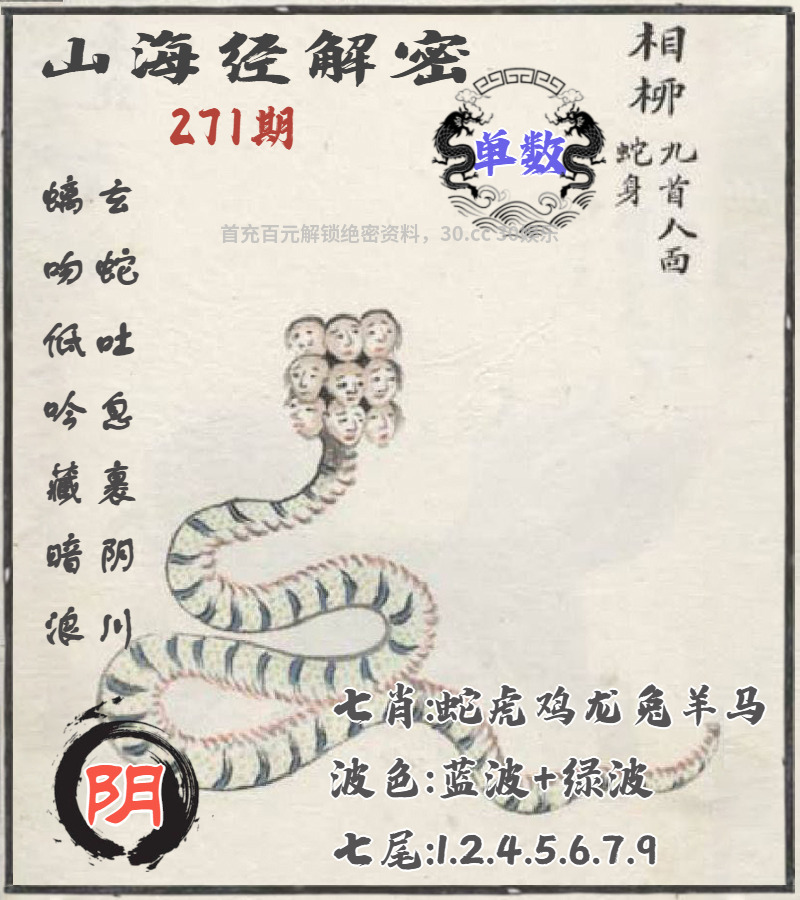 山海经解密
271期
单数
相柳
九首人面
蛇身
首充百元解锁绝密资料，30.cc 30娱乐
玄蛇吐息裹阴川
螭吻低吟藏暗浪
七肖:蛇虎鸡龙兔羊马
波色:蓝波+绿波
七尾:1.2.4.5.6.7.9
阴